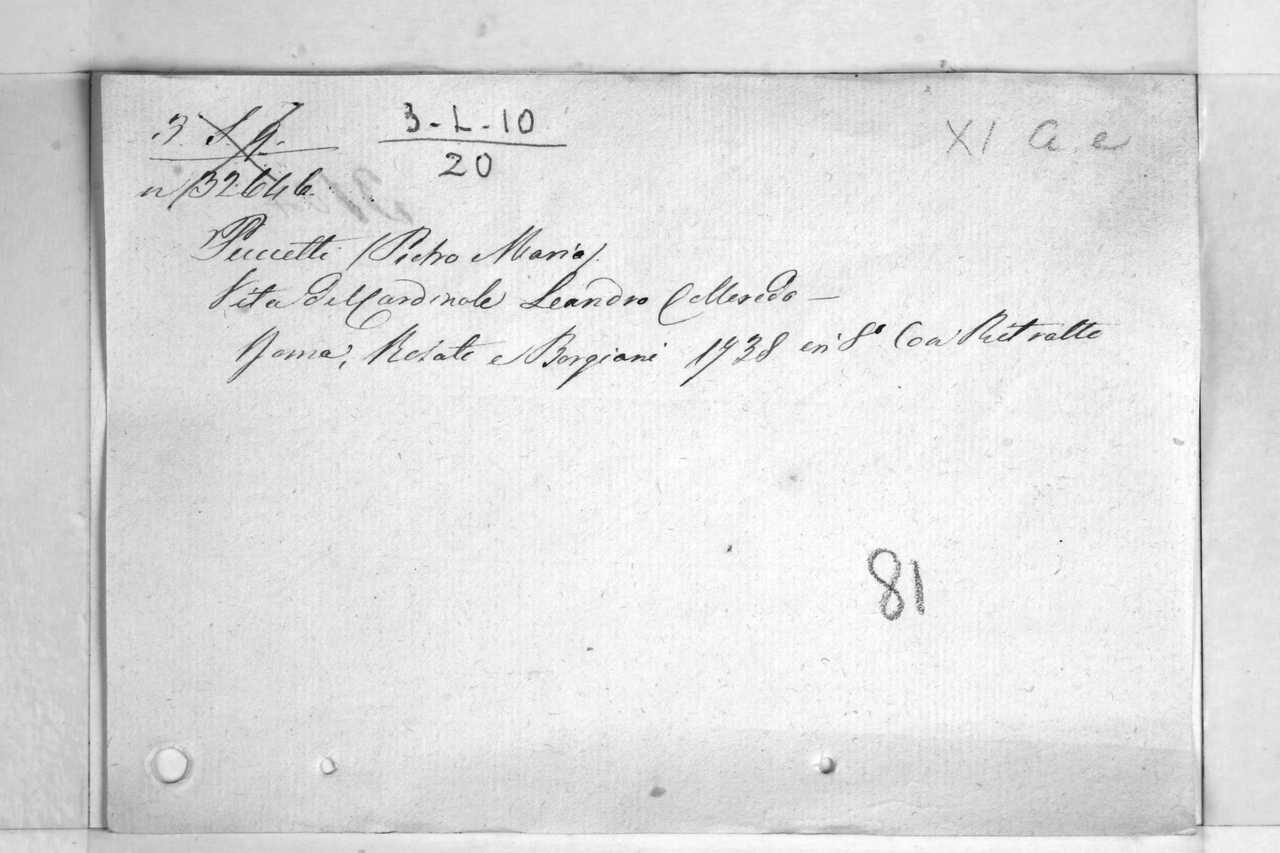 3. S. 9.
3-L-10
20
XI a e
n 32646.
Puccetti (Pietro Maria).
Vita del Cardinale Leandro Colleredo —
Roma, Rosati e Borgiani 1738 in 8° Con Ritratto
81